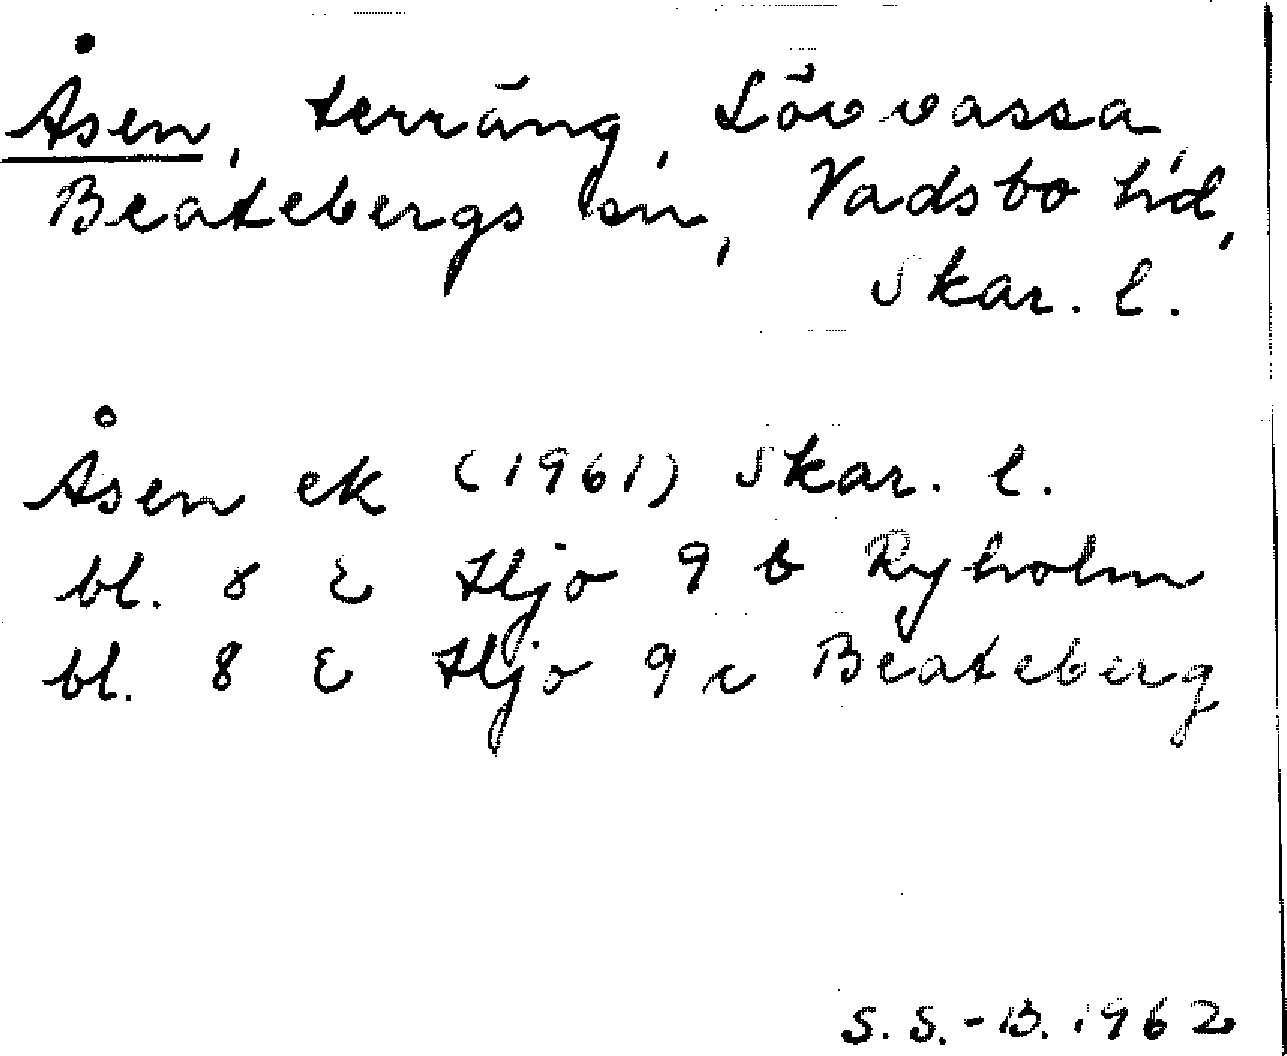 Åsen, terräng, Lövvassa,
Beatebergs sn, Vadsbo hd,
Skar. l.
Åsen ek (1961) Skar. l.
bl. 8 E Hjo 9 b Ryholm
bl. 8 E Hjo 9 c Beateberg
S. S.-B. 1962